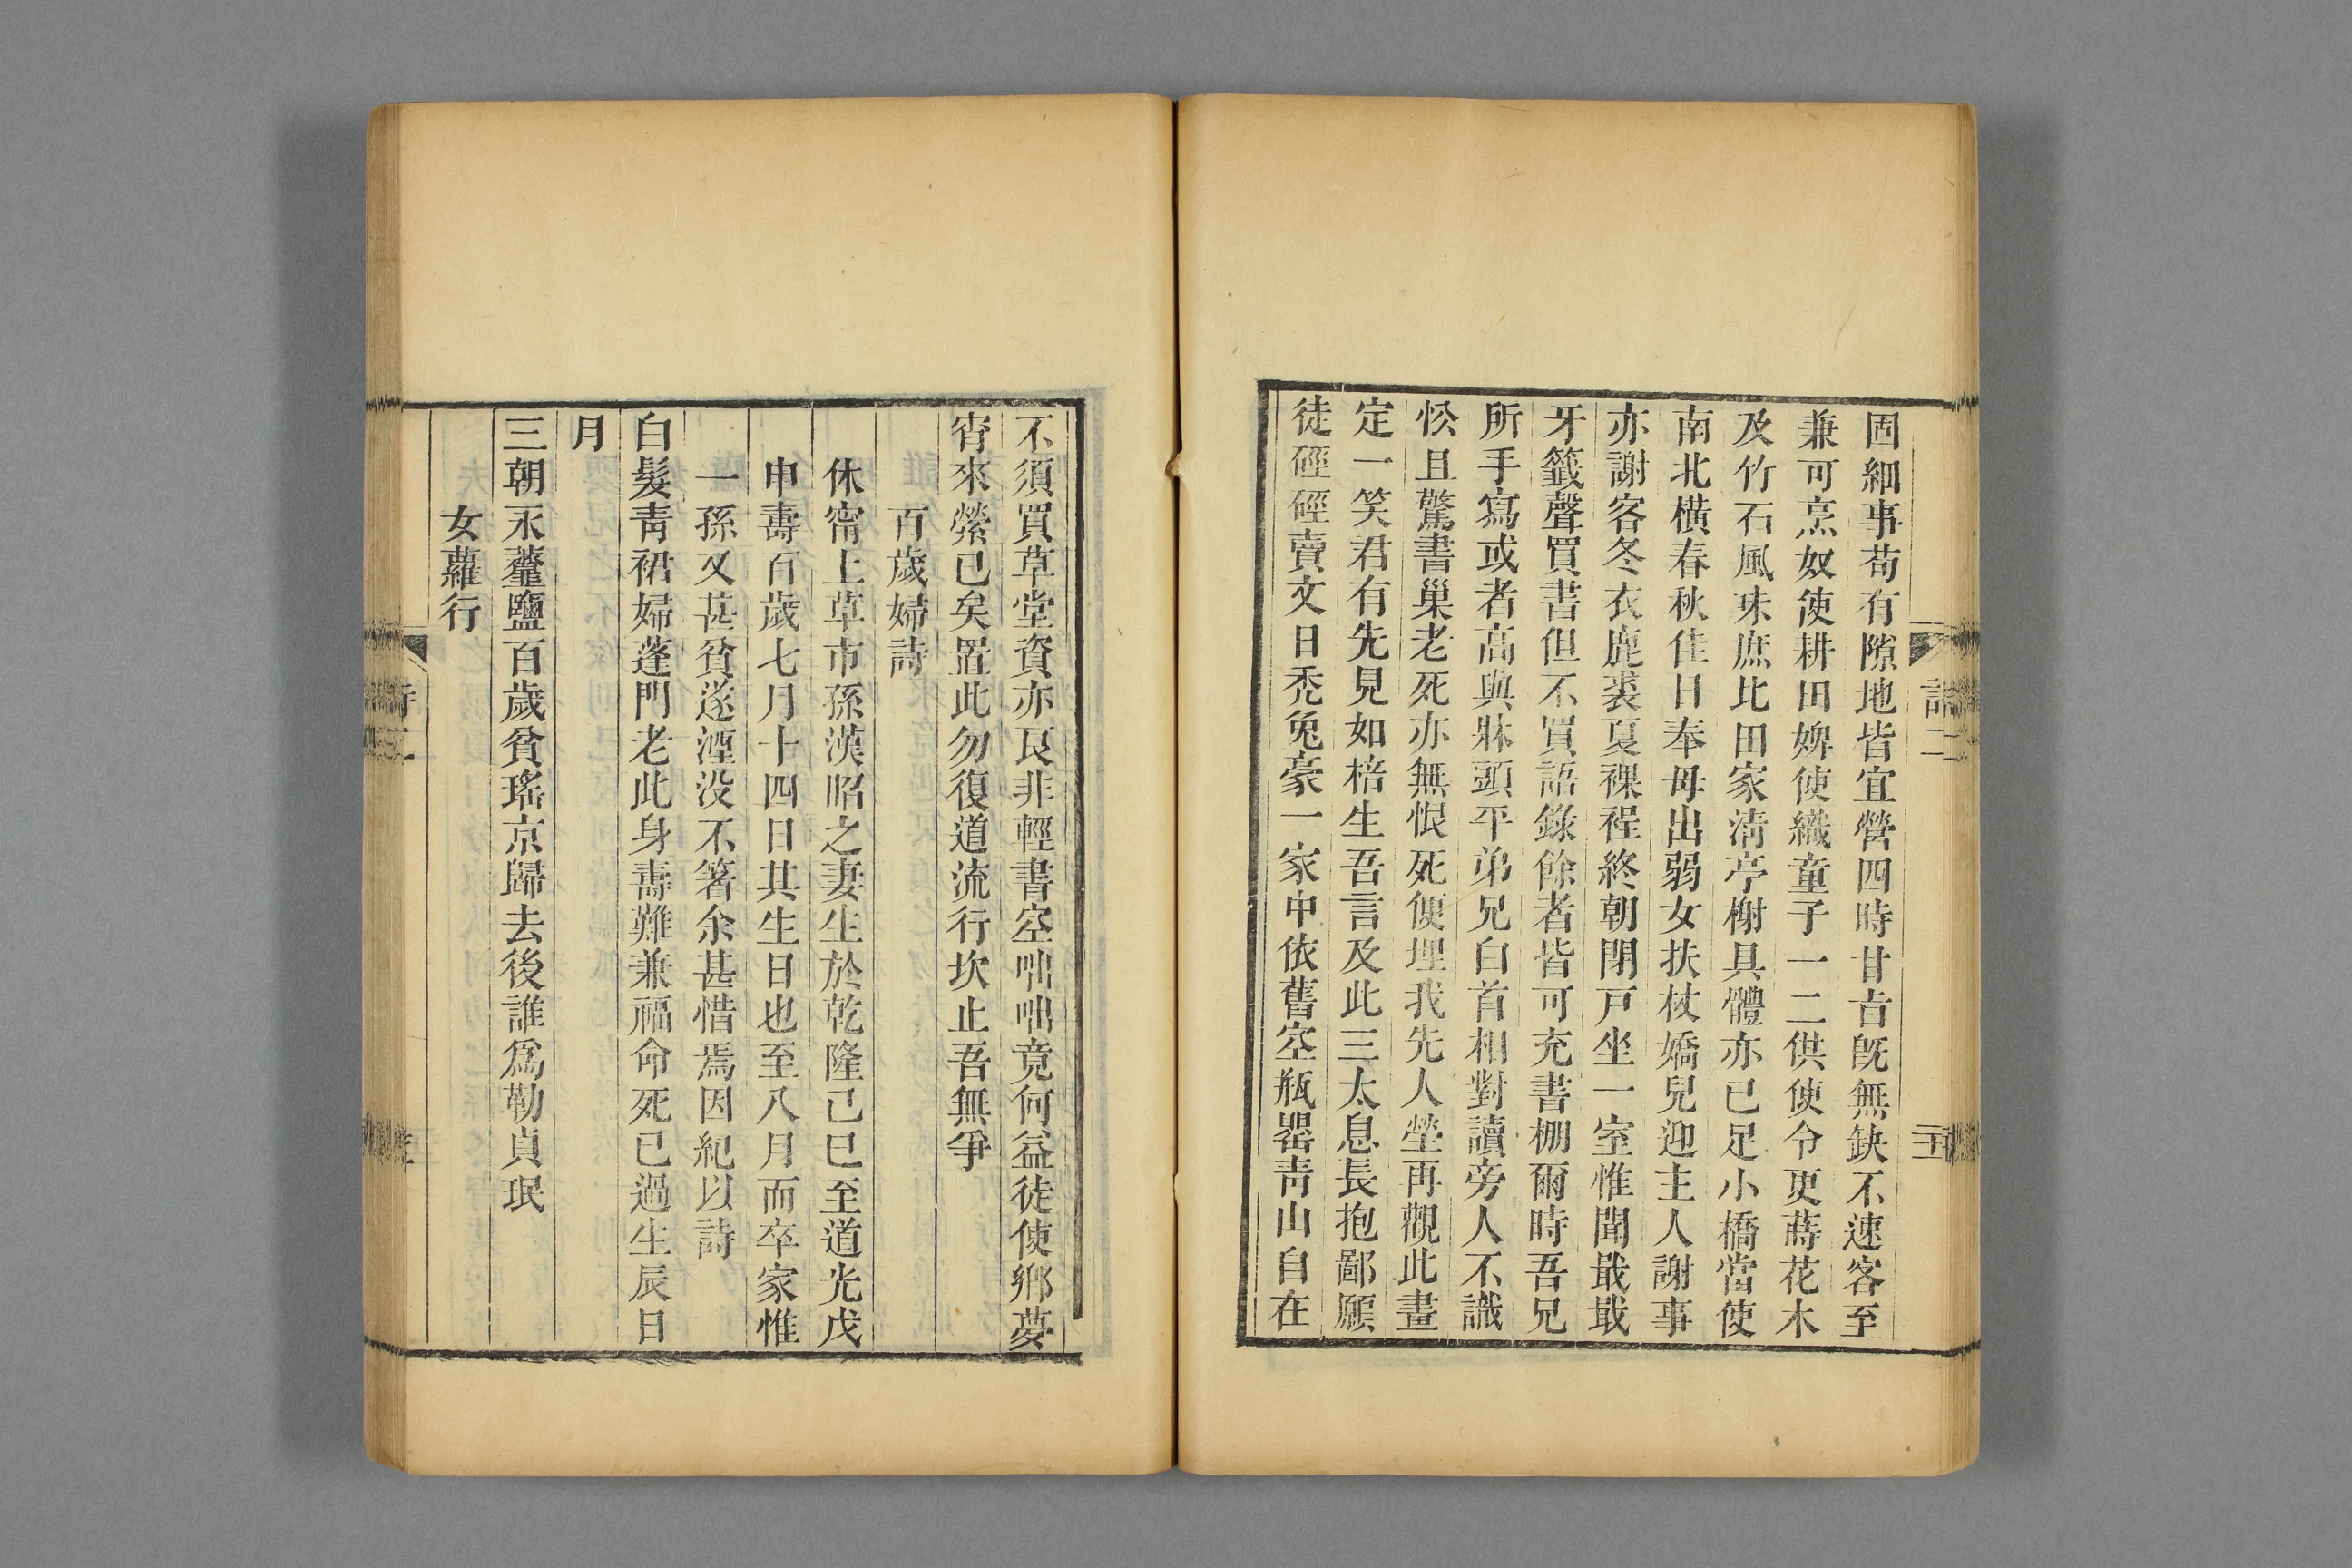 固細事苟有隙地皆宜營四時甘旨旣無缺不速客至
兼可烹奴使耕田婢使織童子一二供使令更蒔花木
及竹石風味庶比田家淸亭榭具體亦已足小橋當使
南北橫春秋佳日奉母出弱女扶杖嬌兒迎主人謝事
亦謝客冬衣鹿裘夏裸裎終朝閉戸坐一室惟聞戢戢
牙籤聲買書但不買語錄餘者皆可充書棚爾時吾兄
所手寫或者高與牀頭平弟兄白首相對讀旁人不識
忪且驚書巢老死亦無恨死便埋我先人塋再觀此畫
定一笑君有先見如梧生吾言及此三太息長抱鄙願
徒硜硜賣文日禿兔豪一家中依舊空瓶罌靑山自在
詩二
不須買草堂資亦良非輕書空咄咄竟何益徒使鄉夢
宵來縈已矣置此勿復道流行坎止吾無爭
百歲婦詩
休甯上草市孫漢昭之妻生於乾隆己巳至道光戊
申壽百歲七月十四日其生日也至八月而卒家惟
一孫又甚貧遂湮没不箸余甚惜焉因紀以詩
白髮靑裙婦蓬門老此身壽難兼福命死已過生辰日
月
三朝永虀鹽百歲貧瑤京歸去後誰爲勒貞珉
女蘿行
詩二